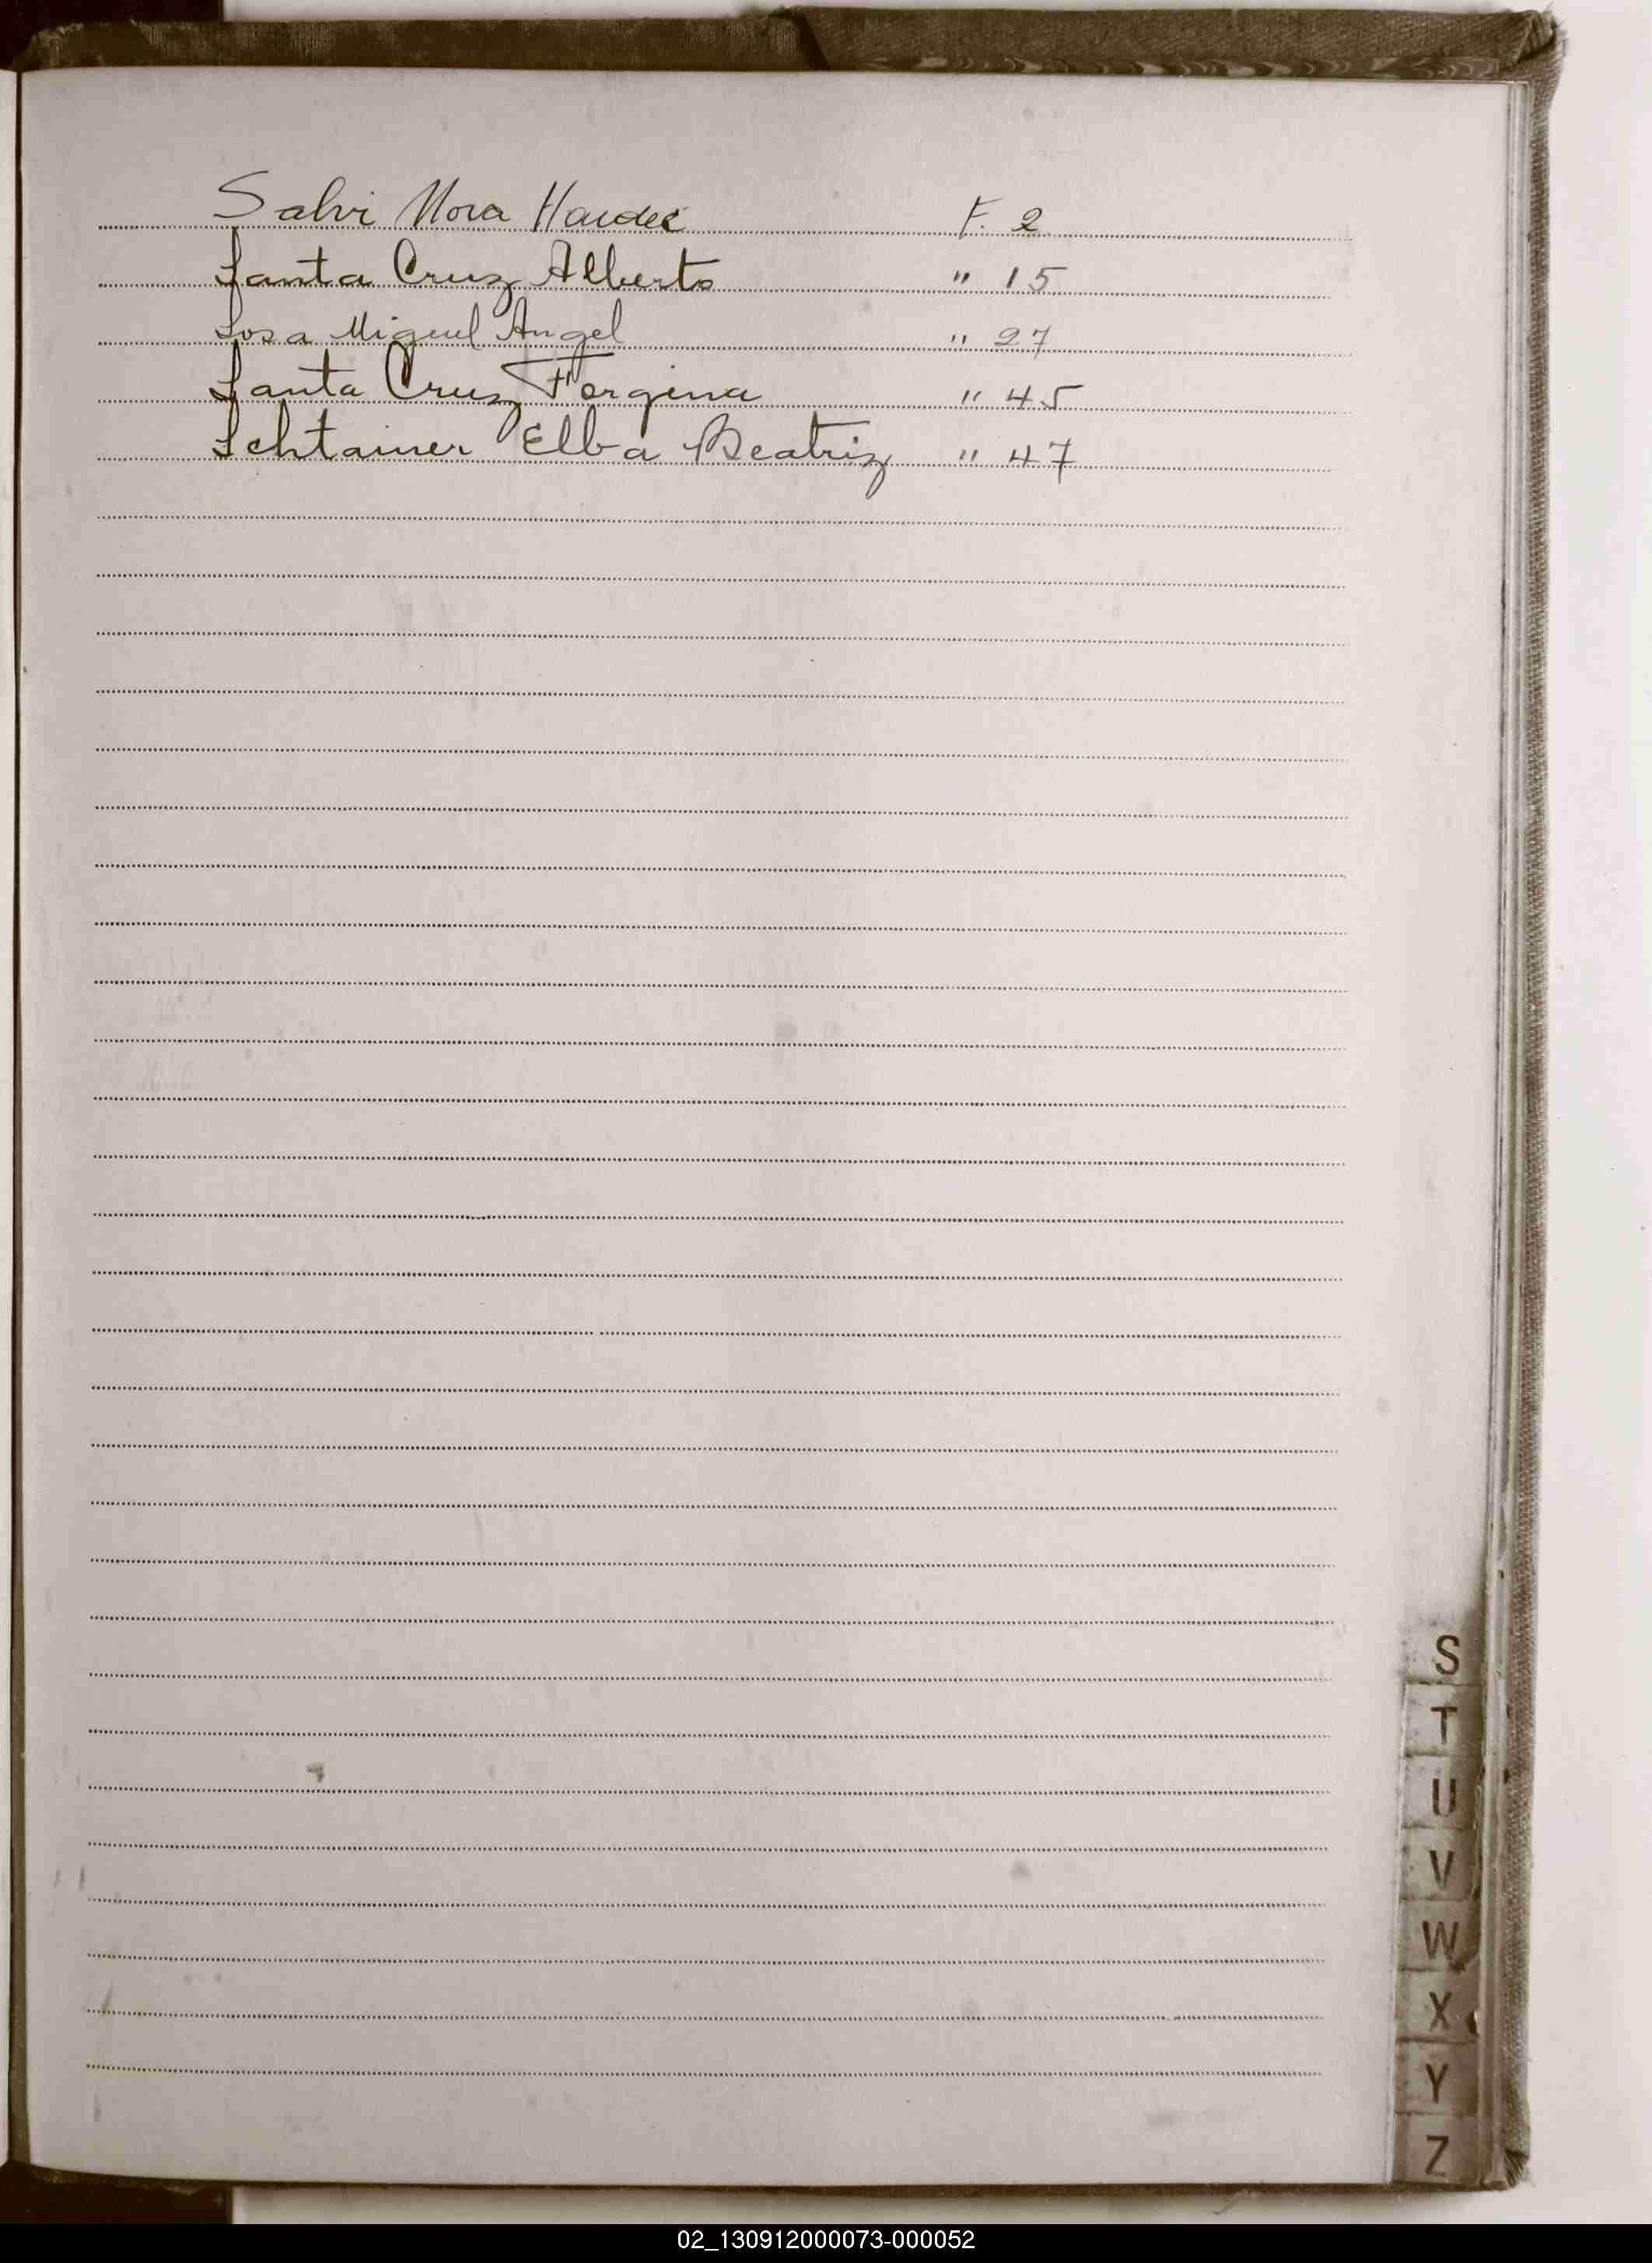 Salvi Nora Haidee F. 2
Santa Cruz Alberto " 15
Sosa Miguel Angel " 27
Santa Cruz Forgina " 45
Schtainer Elba Beatriz " 47
S
T
U
V
W
X
Y
Z
02_130912000073-000052